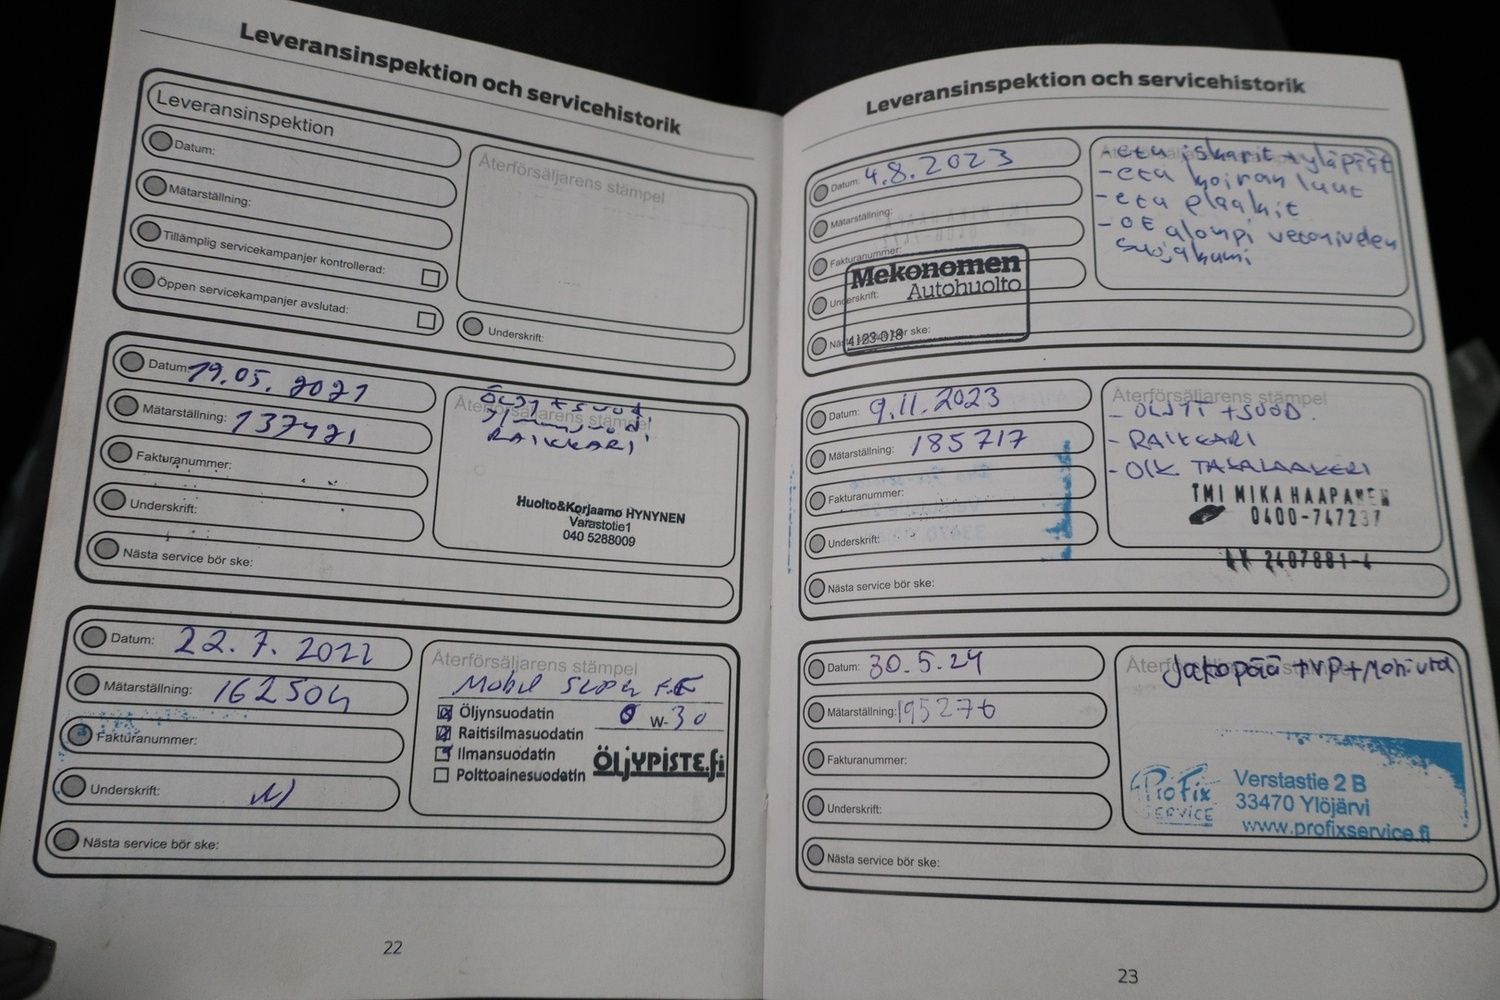 Leveransinspektion och servicehistorik
Leveransinspektion
Datum:
Mätarställning:
Tillämplig servicekampanjer kontrollerad:
Öppen servicekampanjer avslutad:
Återförsäljarens stämpel
Underskrift:
Datum: 19.05.2021
Mätarställning: 137421
Fakturanummer:
Underskrift:
Nästa service bör ske:
Återförsäljarens stämpel
RAIKKARI
Huolto&Korjaamo HYNYNEN
Varastotie1
040 5288009
Datum: 22.7.2022
Mätarställning: 162504
Fakturanummer:
Underskrift:
Nästa service bör ske:
Återförsäljarens stämpel
Mobil Super FE
Öljynsuodatin 0 W-30
Raitisilmasuodatin
Ilmansuodatin
Polttoainesuodatin
ÖLJYPISTE.fi
22
Leveransinspektion och servicehistorik
Datum: 4.8.2023
Mätarställning:
Fakturanummer:
Underskrift:
Nästa service bör ske:
Mekonomen
Autohuolto
4123-018
- etu iskarit + yläpäät
- etu koiran luut
- etu plaakit
- OE alompi vetonivelen
suojakumi
Datum: 9.11.2023
Mätarställning: 185717
Fakturanummer:
Underskrift:
Nästa service bör ske:
Återförsäljarens stämpel
- ÖLJYT + SUOD.
- RAIKKARI
- OIK TAKALAAKERI
TMI MIKA HAAPANEN
0400-747237
2407881-4
Datum: 30.5.24
Mätarställning: 195276
Fakturanummer:
Underskrift:
Nästa service bör ske:
Jakopää + VP + Moniura
ProFix
SERVICE
Verstastie 2 B
33470 Ylöjärvi
www.profixservice.fi
23